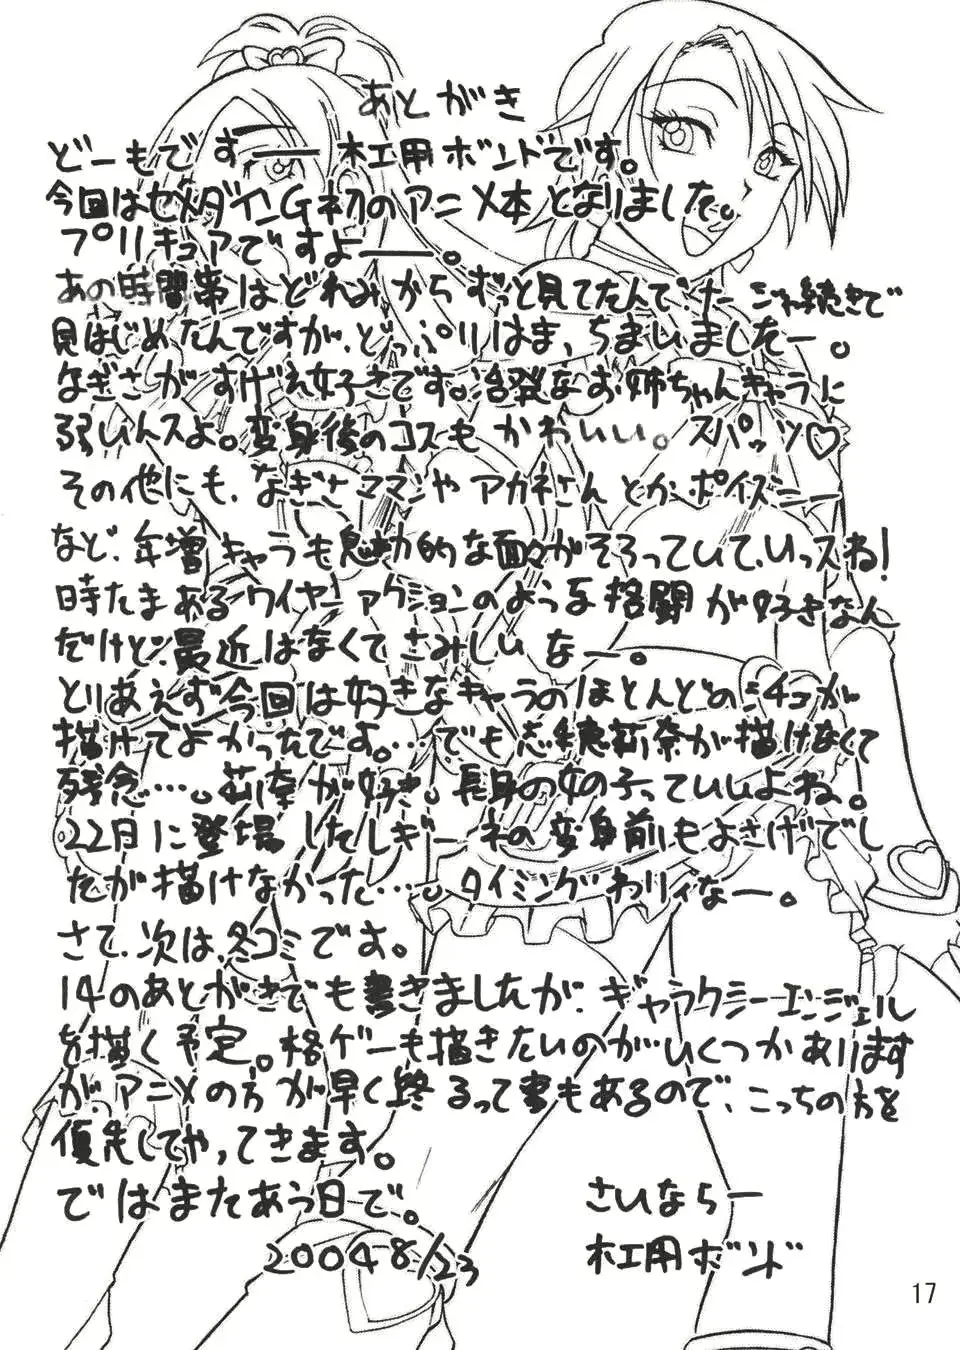 あとがき
どーもです――木工用ボンドです。
今回はセメダインG初のアニメ本となりました。
プリキュアですよ――。
あの時間帯はどれみからずっと見てたんで、ナージャ続きで
見はじめたんですが、どっぷりはま、ちまいましたー。
なぎさがすげえ好きです。活発なお姉ちゃんキャラに
弱いんスよ。変身後のコスもかわいい。スパッツ♡
その他にも、なぎさママンやアカネさんとかポイズニー
など、年増キャラも魅力的な面々がそろっていて、いっスね!
時たまあるワイヤーアクションのような格闘が好きなん
だけど、最近はなくてさみしいなー。
とりあえず今回は好きなキャラのほとんどのシチュが
描けてよかったです。…でも志穂莉奈が描けなくて
残念…。莉奈が好き。長身の女の子っていいよね。
22日に登場したレギーネの変身前もよさげでし
たが描けなかった…。タイミングわりィなー。
さて、次は、冬コミです。
14のあとがきでも書きましたが、ギャラクシーエンジェル
を描く予定。格ゲーも描きたいのがいくつかあります
が、アニメの方が早く終るって事もあるので、こっちの方を
優先してやってきます。
ではまたあう日で。
さいならー
2004 8/23
木工用ボンド
17